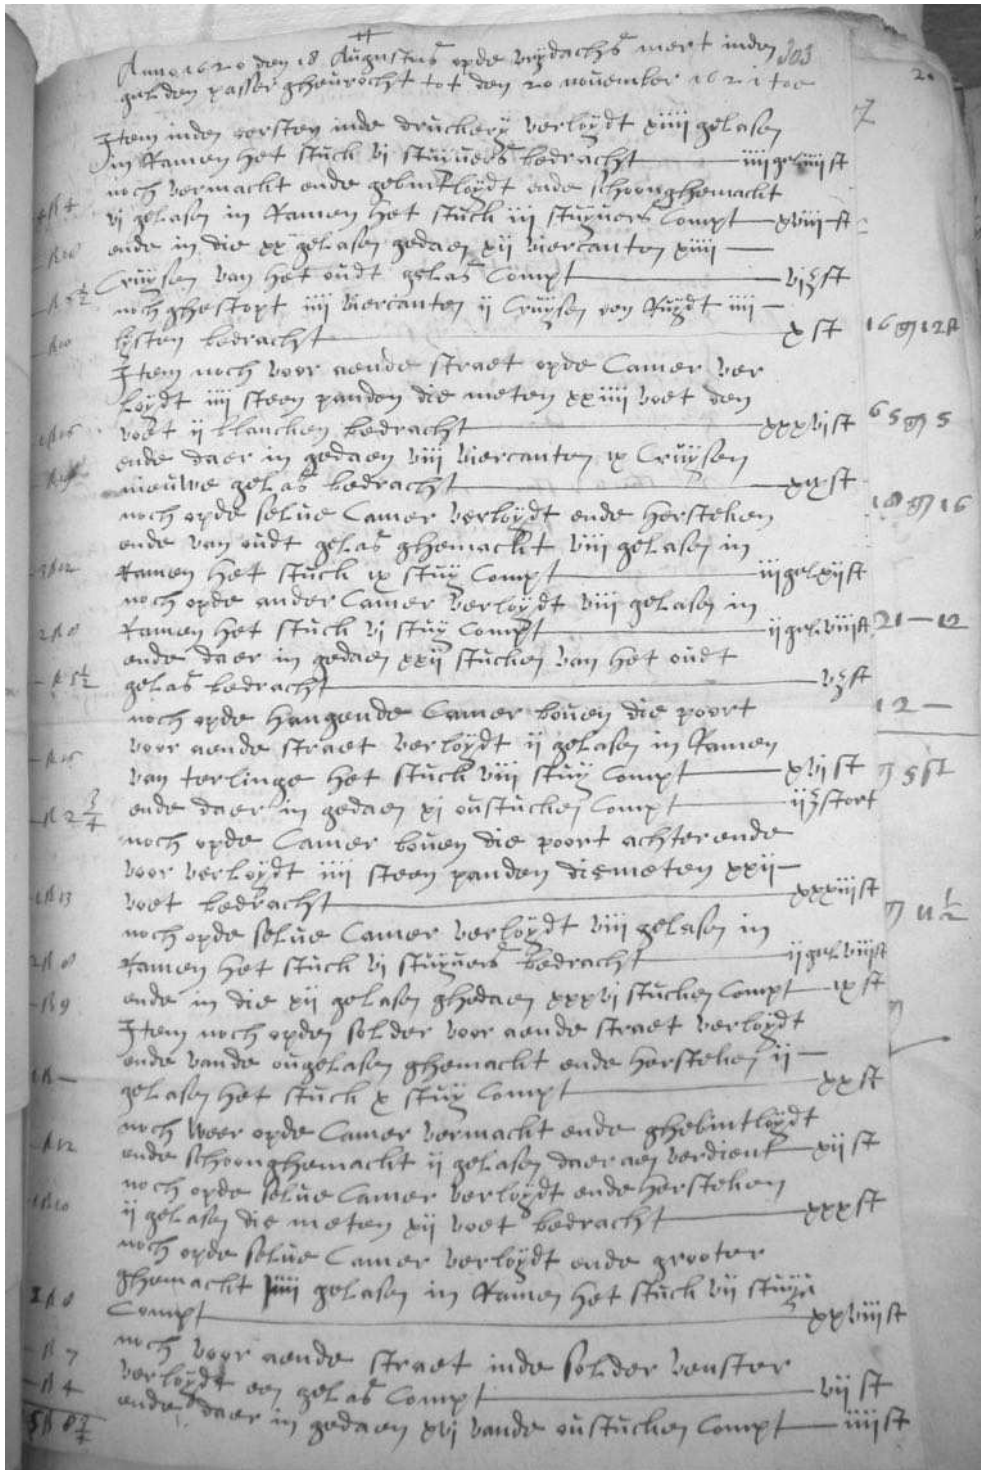 Anno 1620 den 18 Augustus opde vrydachs mert inden 303
gulden passer ghewrocht tot den 20 november 1621 toe
Item inden eersten inde druckery verloydt xiiii gelasen
in Ramen het stuck vi stuyvers bedracht iiii gel iiii st
noch vermackt ende gebintloydt ende schoonghemackt
vi gelasen in Ramen het stuck iii stuyvers Compt xviii st
ende in die xx gelasen gedaen xii viercanten xiiii
Cruysen van het oudt gelas Compt st
noch ghestopt iiii viercanten ii Cruysen een Ruydt iiii
lysten bedracht x st
Item noch voor aende straet opde Camer ver
loydt iiii steen panden die meten xxiiii voet den
voet ii blancken bedracht xxxvi st
ende daer in gedaen viii viercanten ix Cruysen
nieuwe gelas bedracht st
noch opde selve Camer verloydt ende hersteken
ende van oudt gelas ghemackt viii gelasen in
Ramen het stuck ix stuy Compt iii gel xii st
noch opde ander Camer verloydt viii gelasen in
Ramen het stuck vi stuy Compt ii gel viii st
ende daer in gedaen xxii stucken van het oudt
gelas bedracht st
noch opde hangende Camer boven die poort
voor aende straet verloydt ii gelasen in Ramen
van terlinge het stuck viii stuy Compt xvi st
ende daer in gedaen xi oustucken Compt
noch opde Camer boven die poort achter ende
voor verloydt iiii steen panden die meten xxii
voet bedracht xxxiii st
noch opde selve Camer verloydt viii gelasen in
Ramen het stuck vi stuyvers bedracht ii gel viii st
ende in die xii gelasen ghedaen xxxvi stucken Compt ix st
Item noch opden solder voor aende straet verloydt
ende vande ougelasen ghemackt ende hersteken ii
gelasen het stuck x stuy Compt xx st
noch weer opde Camer vermackt ende ghebintloydt
ende schoonghemackt ii gelasen daer aen verdient xii st
noch opde selve Camer verloydt ende hersteken
ii gelasen die meten xii voet bedracht xxx st
noch opde selve Camer verloydt ende grooter
ghemackt iiii gelasen in Ramen het stuck vii stuyv
Compt xxviii st
noch voor aende straet inde solder venster
verloydt een gelas Compt vii st
ende daer in gedaen xvi vande oustucken Compt iiii st